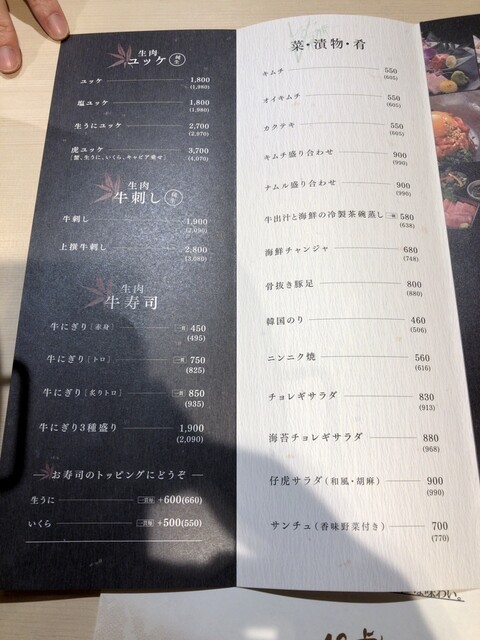 生肉
ユッケ
ユッケ 1,800
(1,980)
塩ユッケ 1,800
(1,980)
生うにユッケ 2,700
(2,970)
虎ユッケ 3,700
[蟹、生うに、いくら、キャビア乗せ] (4,070)
生肉
牛刺し
牛刺し 1,900
(2,090)
上撰牛刺し 2,800
(3,080)
生肉
牛寿司
牛にぎり[赤身] 一貫 450
(495)
牛にぎり[トロ] 一貫 750
(825)
牛にぎり[炙りトロ] 一貫 850
(935)
牛にぎり3種盛り 1,900
(2,090)
お寿司のトッピングにどうぞ
生うに 一貫毎 +600(660)
いくら 一貫毎 +500(550)
菜・漬物・肴
キムチ 550
(605)
オイキムチ 550
(605)
カクテキ 550
(605)
キムチ盛り合わせ 900
(990)
ナムル盛り合わせ 900
(990)
牛出汁と海鮮の冷製茶碗蒸し 580
(638)
海鮮チャンジャ 680
(748)
骨抜き豚足 800
(880)
韓国のり 460
(506)
ニンニク焼 560
(616)
チョレギサラダ 830
(913)
海苔チョレギサラダ 880
(968)
仔虎サラダ(和風・胡麻) 900
(990)
サンチュ(香味野菜付き) 700
(770)
味わい。